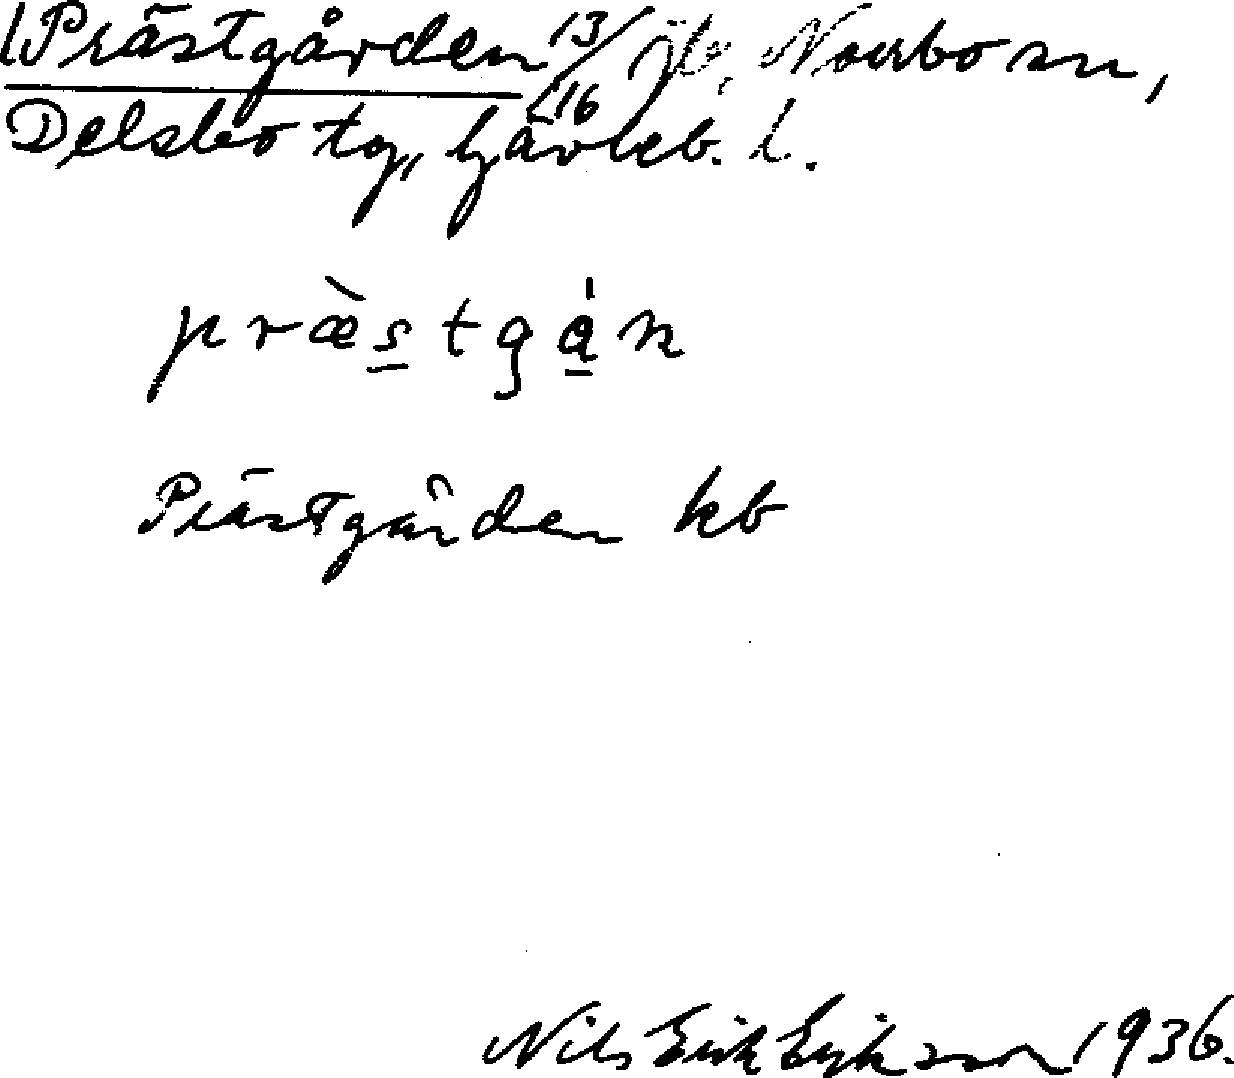 Prästgården 13/16 jb, Norrbo sn,
Delsbo tg, Gävleb. l.
præ̀stgạ̊n
Prästgården kb
Nils Erik Eriksson 1936.